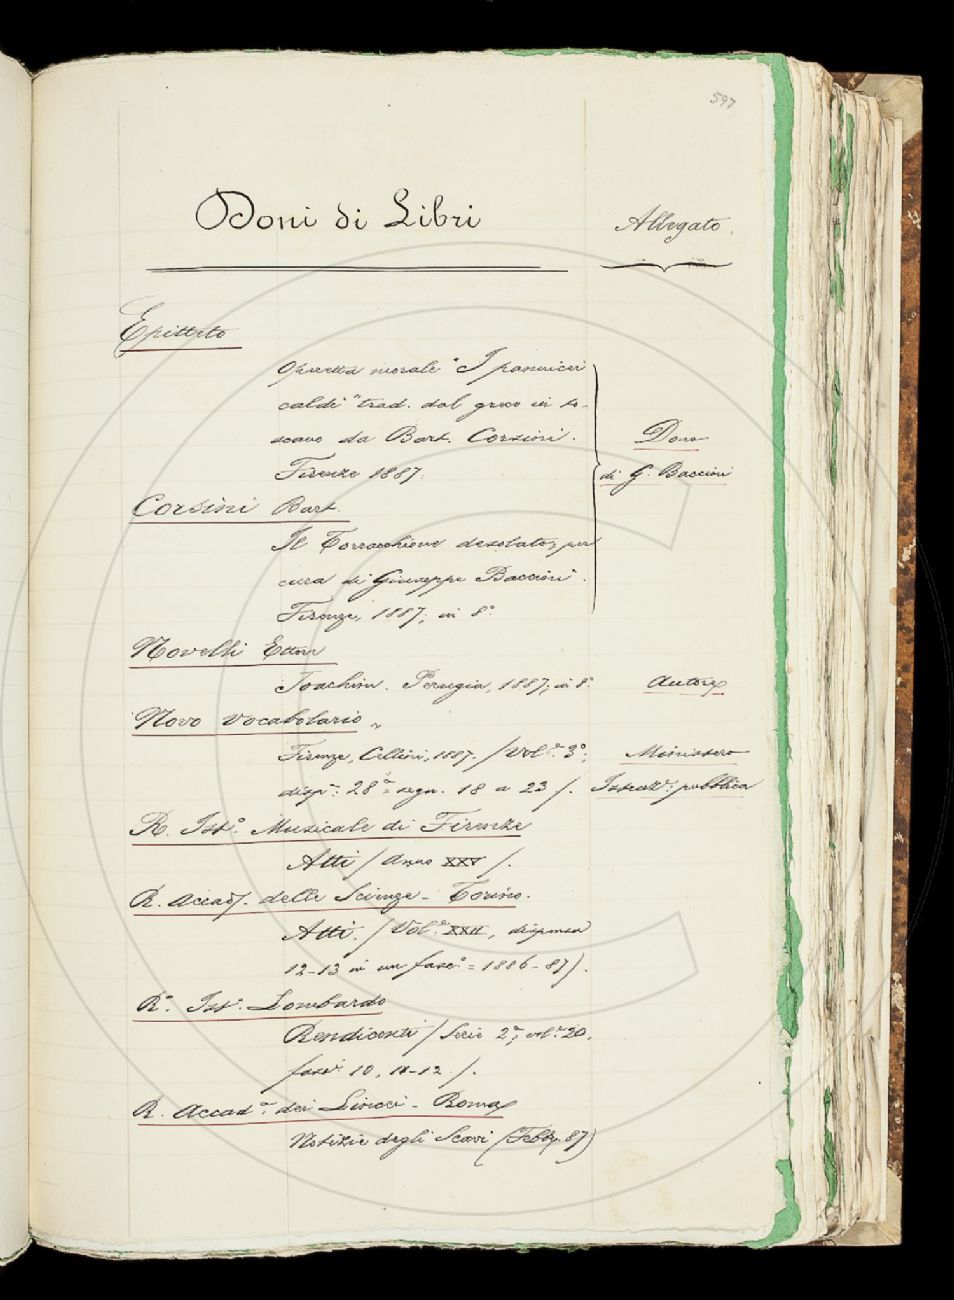 597
Doni di Libri
Allegato.
Epitteto
Operetta morale "I
caldi" trad. dal greco in to-
scano da Bart. Corsini.
Firenze 1887.
Dono
di G. Baccini
Corsini Bart.
Il Torracchione desolato, per
cura di Giuseppe Baccini.
Firenze, 1887; in 8.°
Novelli Ettore
Joachim. Perugia, 1887; in 8.°
Autore
Novo vocabolario
Firenze, Cellini, 1887. / Vol.e 3.°;
disp.a: 28.a = segn. 18 a 23 /.
Ministero
Istruz.e: pubblica
R. Ist.o Musicale di Firenze
Atti / Anno XXV /.
R. Accad. delle Scienze - Torino.
Atti. / Vol.e XXII, dispensa
12-13 in un fasc.o = 1886-87 /.
R.o Ist.o Lombardo
Rendiconti / Serie 2.a; vol.e 20.
fasc.i 10, 11-12 /.
R. Accad.a dei Lincei - Roma
Notizie degli Scavi (Febb. 87)